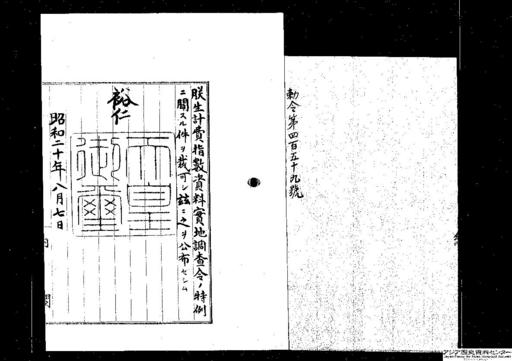 勅令第四百五十九號
朕生計費指數資料實地調査令ノ時例
ニ關スル件ヲ裁可シ玆ニ之ヲ公布セシム
裕仁
天皇
御璽
昭和二十年八月七日
内
閣
アジア歴史資料センター